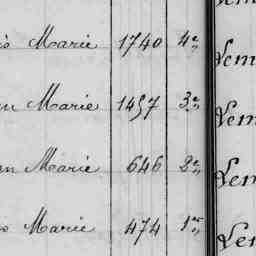 Marie 1740 4e Lem
Marie 1457 3e Lem
Marie 646 2e Lem
Marie 474 1er Lem